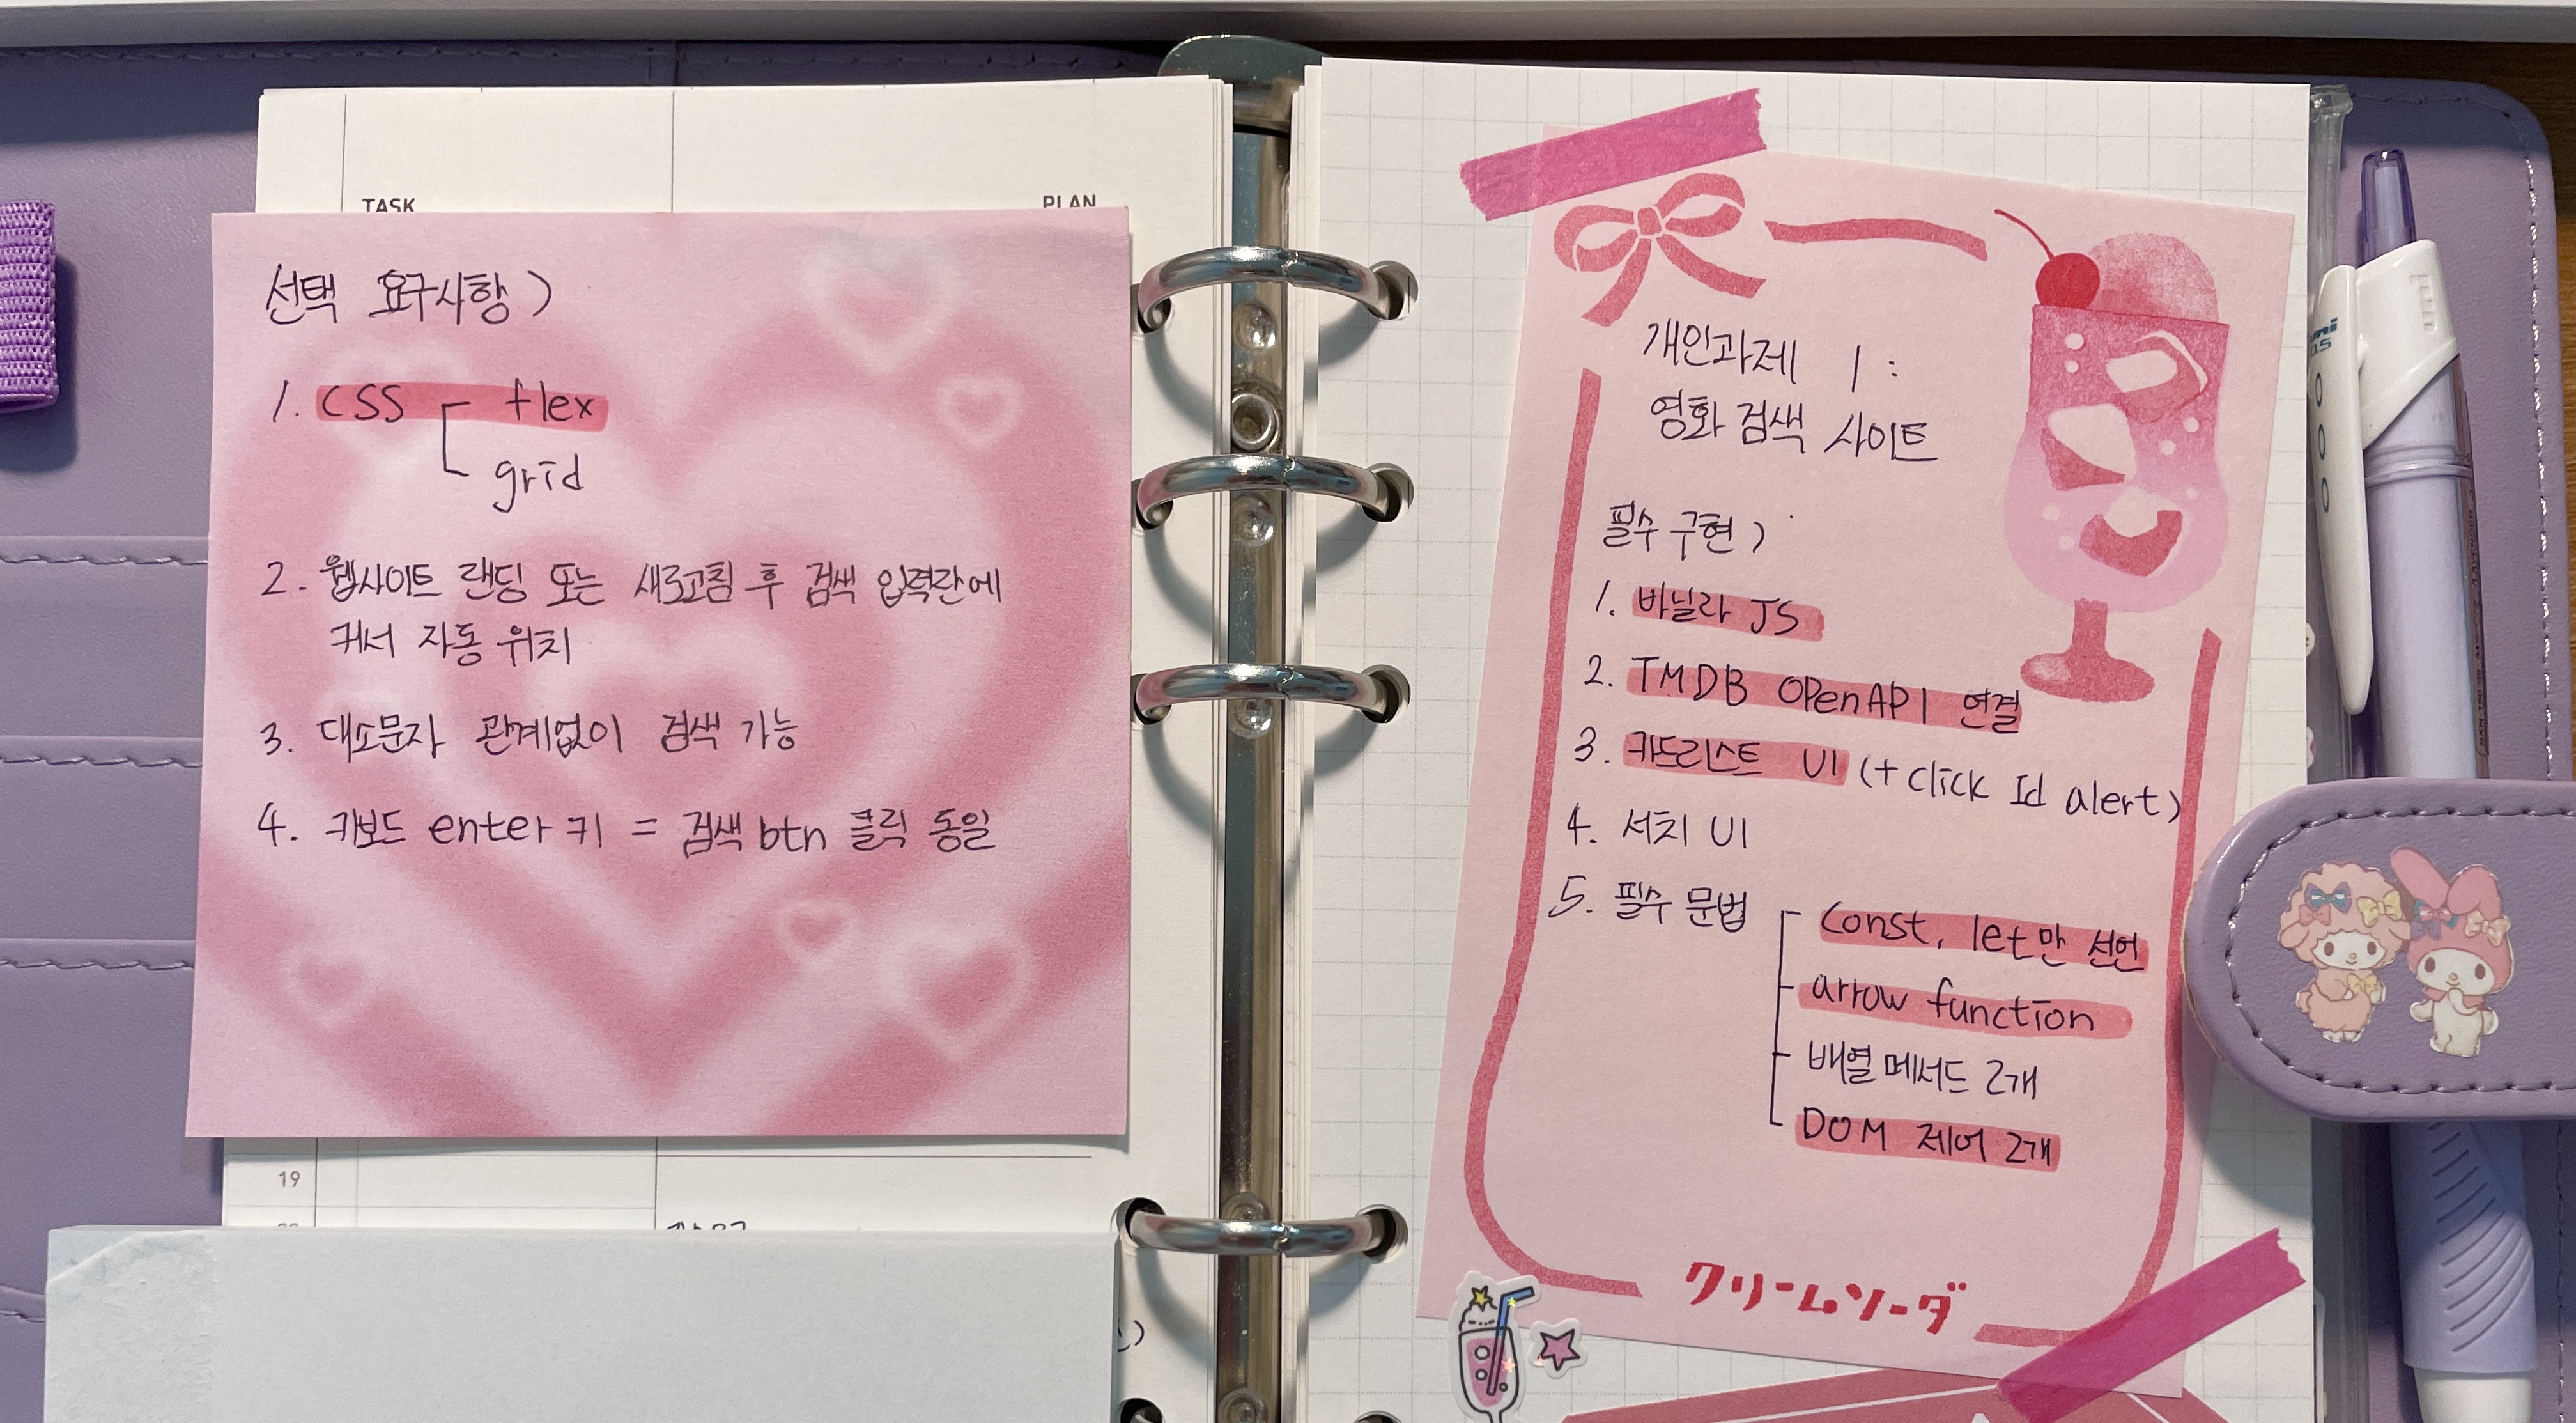 TASK
PLAN
선택 요구사항)
1. CSS flex
grid
2. 웹사이트 랜딩 또는 새로고침 후 검색 입력란에
커서 자동 위치
3. 대소문자 관계없이 검색 가능
4. 키보드 enter 키 = 검색 btn 클릭 동일
19
개인과제 1:
영화 검색 사이트
필수 구현)
1. 바닐라 JS
2. TMDB OPenAPI 연결
3. 카드리스트 UI (+ click Id alert)
4. 서치 UI
5. 필수 문법
const, let만 선언
arrow function
배열 메서드 2개
DOM 제어 2개
クリームソーダ
uni
0.5